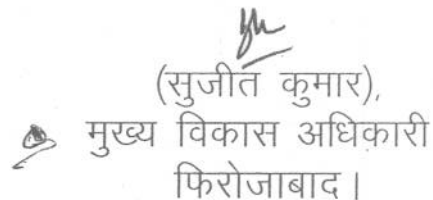 (सुजीत कुमार),
मुख्य विकास अधिकारी
फिरोजाबाद।